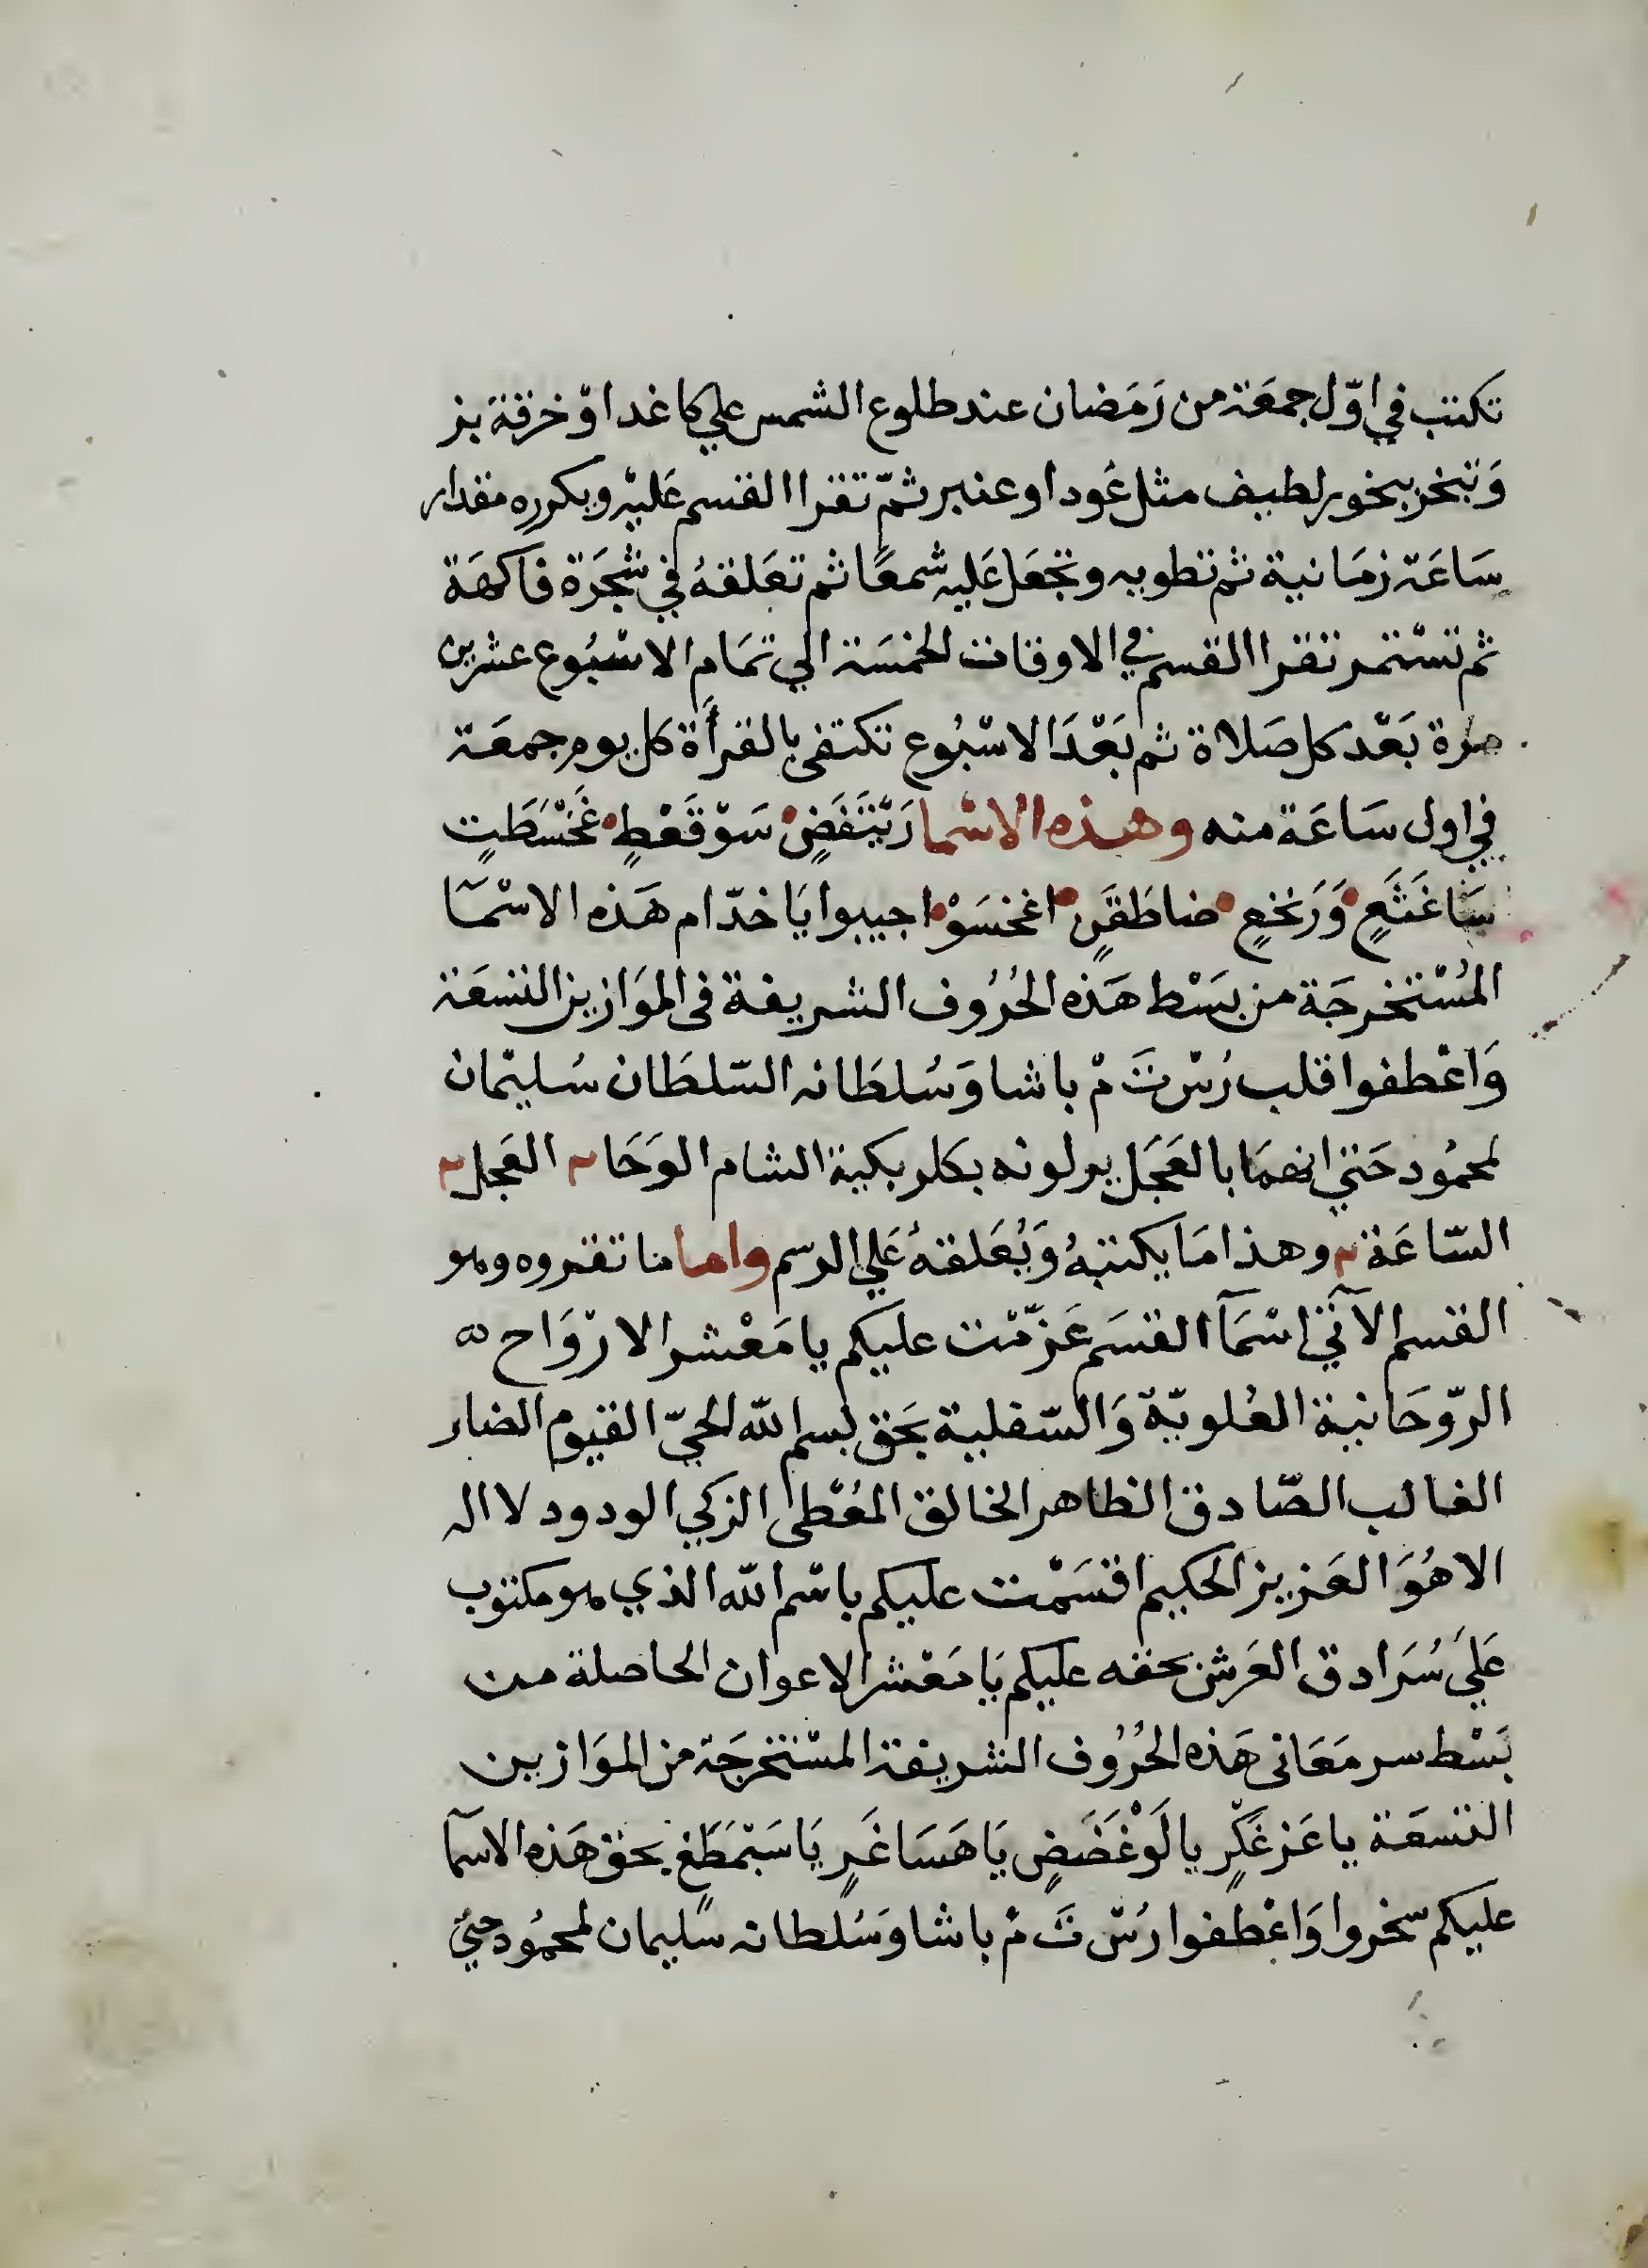 تكتب في اوّل جمعَة من رَمَضان عند طلوع الشمس علي كاغد اوْ خرقة بز
وَتبخر ببخور لطيف مثل عُود او عنبر ثمّ تقرا القسم عَليْه ويكرره مقدار
سَاعَة زمَانية ثم تطويه وتجعَل عَليه شمعًا ثم تعَلقهُ في شجَرَة فاكهَة
ثم تسْتمر تقرا القسم في الاوقات الخمسَة الي تمَام الاسْبُوع عشرين
مرة بَعْد كل صَلاة ثم بَعْدَ الاسْبُوع تكتفى بالقرأَة كل يوم جمعَة
في اول سَاعَة منه وهذه الاسْما رَتْتَفَضٍ سَوْقَعْطٍ غَخْسَطَتٍ
سَاغَثَعٍ وَرَنخعٍ ضاطَقَنٍ اغخسَوْ اجيبوا يَا خدّام هَذه الاسْمَآ
المُسْتخرجَة من بَسْط هَذه الحُرُوف الشريفة فى الموَازين التسعَة
وَاعْطفوا قلب رُسْ تَ مْ باشا وَسُلطَانه السّلطَان سُليْمان
لمحمُود حَتي انهمَا بالعَجَل يولونه بكلربكية الشام الوَحَا ٢ العَجل ٢
السّاعَة ٢ وهذا مَا يكتبهُ وَيُعَلقهُ عَلي الرسم واما ما تقروه وهو
القسم الآتي اسْمَآ القسَم عَزّمْت عليكم يا مَعْشر الارْوَاح
الرّوحَانية العُلويّة وَالسّفلية بحَق بسم الله الحيّ القيوم الضار
الغالب الصّادق الظاهر الخالق المُعْطى الزكي الودود لا اله
الا هُوَ العَزيز الحكيم اقسَمْت عليكم باسْم الله الذي هو مكتوب
عَلَي سُرَادق العَرش بحقه عليكم يَا مَعْشر الاعوان الحاصلة من
بَسْط سر مَعَانى هَذه الحُرُوف الشريفة المسْتخرجَة من الموَازين
التسعَة يا عَزغَكٍر يا لَوْغَضَضٍ يَا هَسَاغَرٍ يَا سَتْمَطَغٍ بحق هَذه الاسمآ
عليكم سخروا وَاعْطفوا رُسْ تَ مْ باشا وَسُلطانه سُليمان لمحمُود حتي